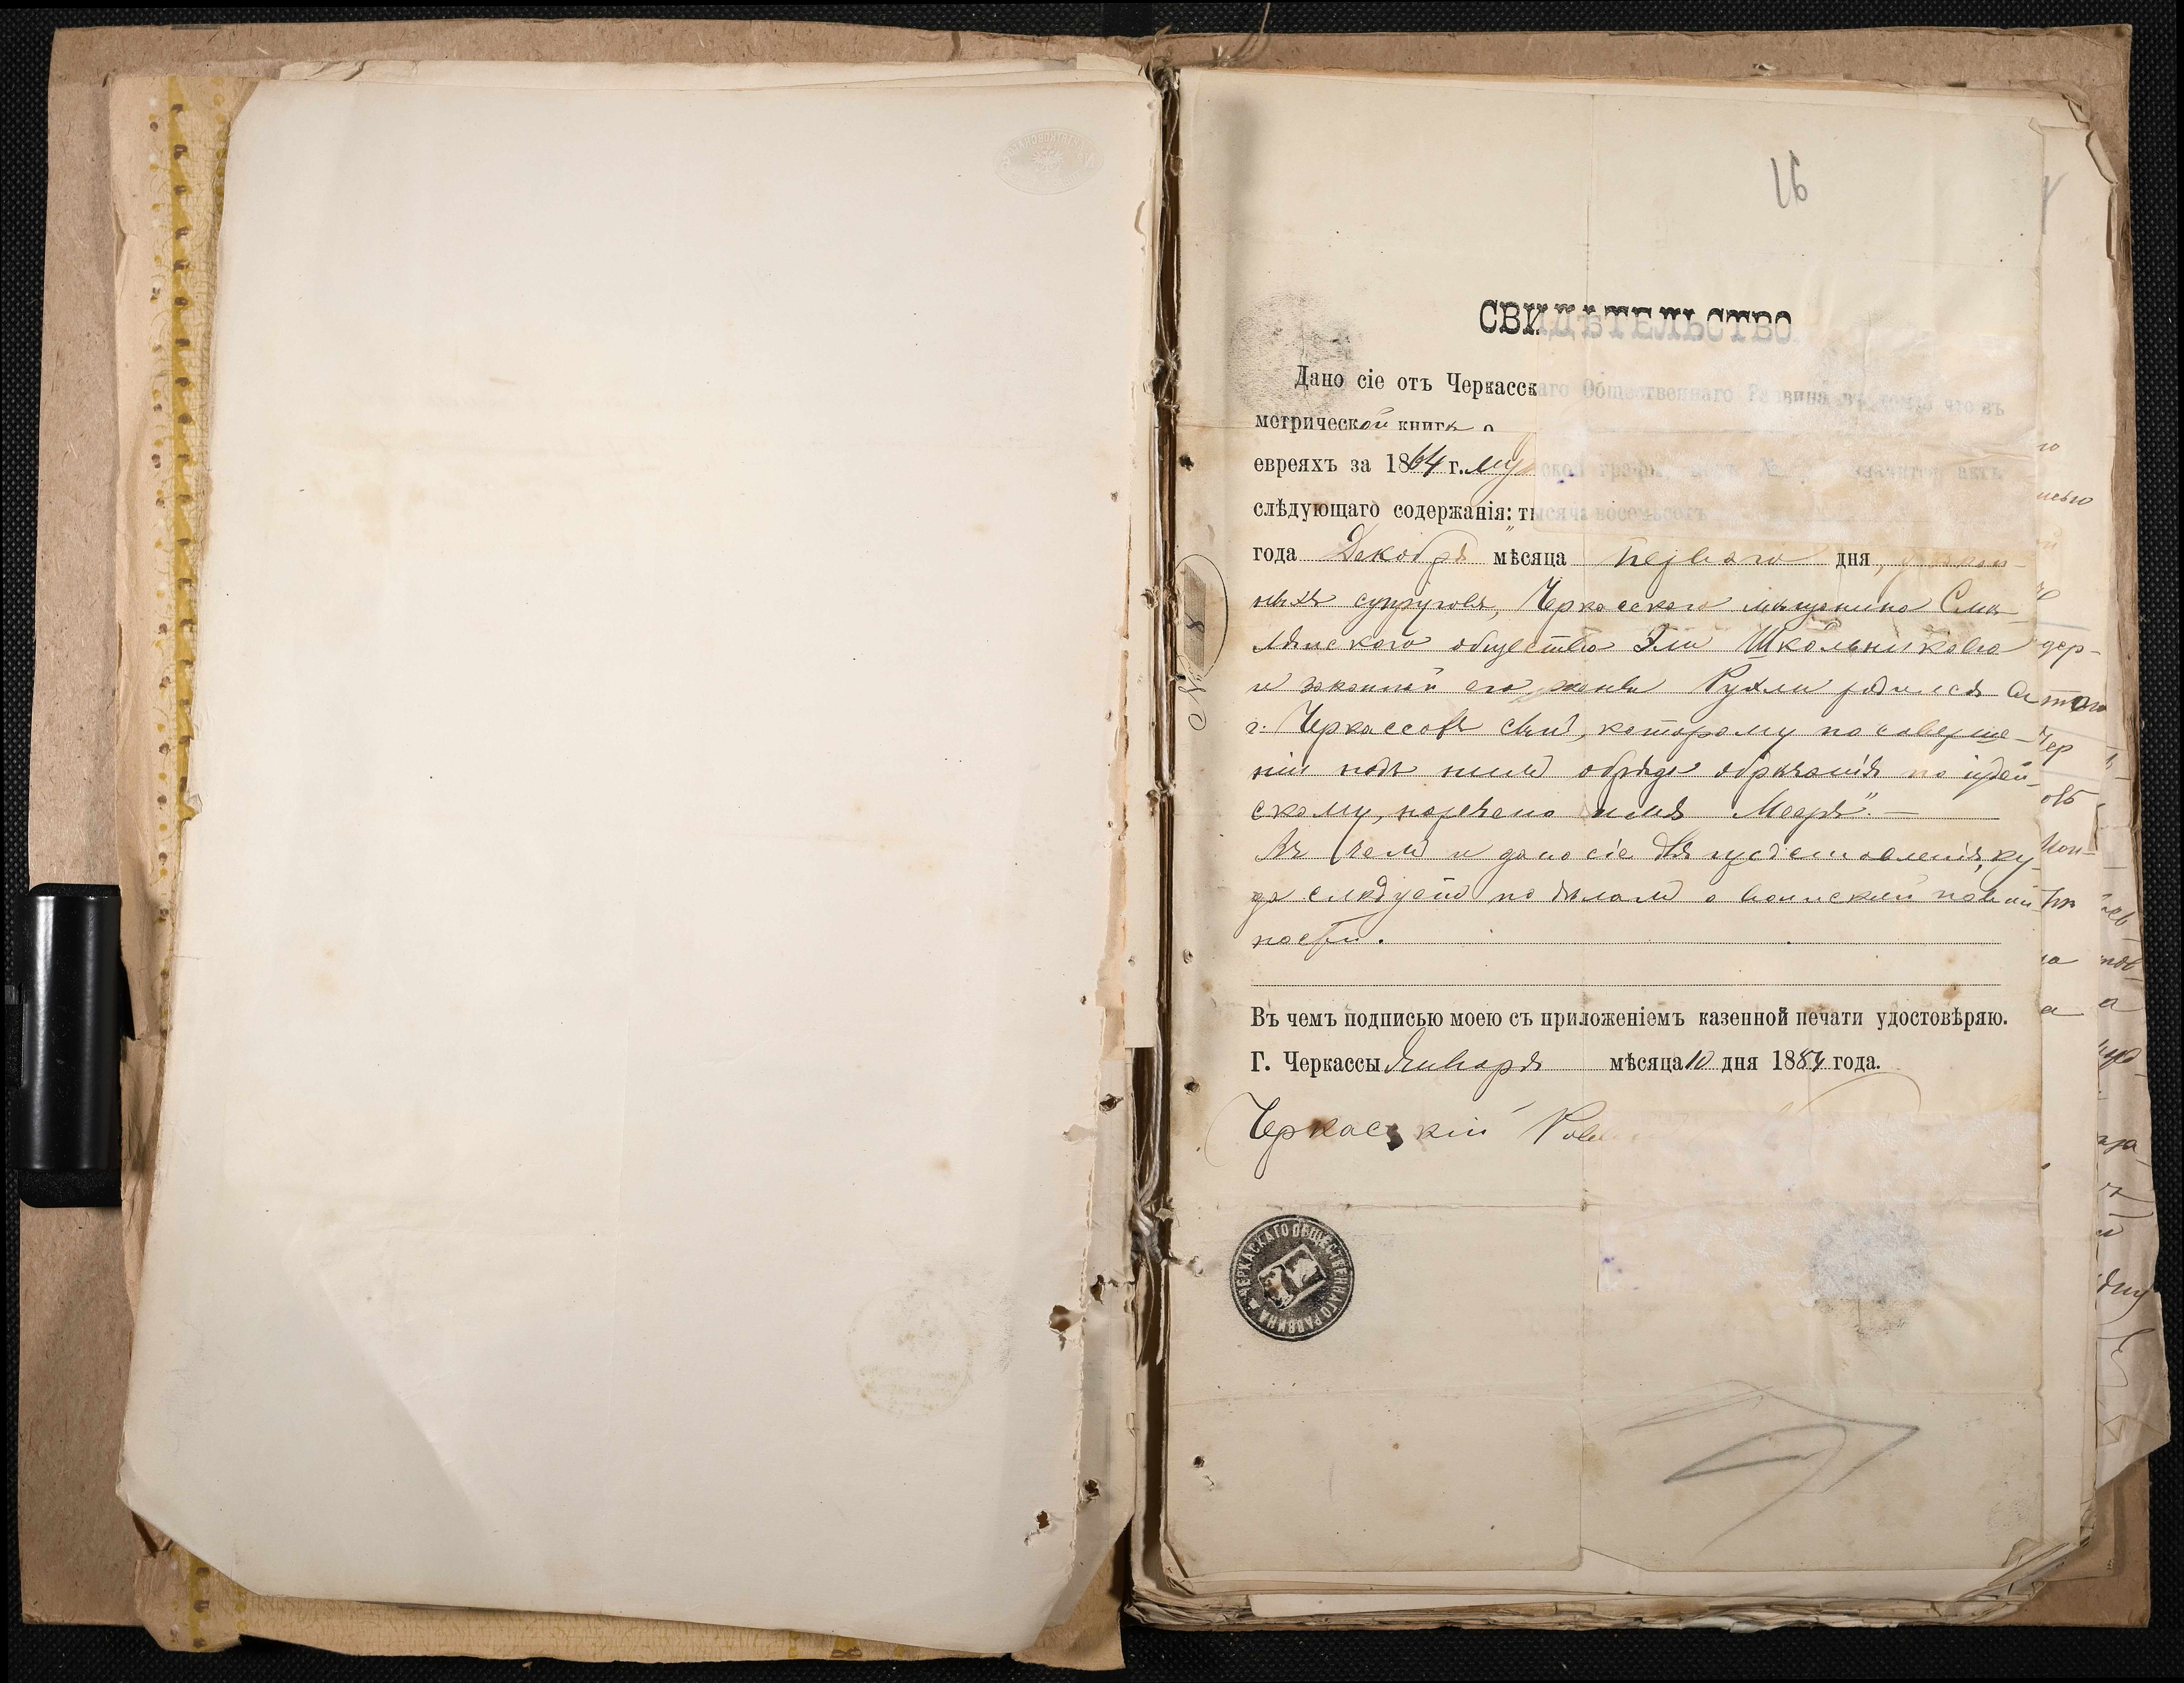 16
СВИДѢТЕЛЬСТВО
Дано сіе отъ Черкасскаго Общественнаго Раввина въ томъ что въ
метрической книгѣ о
евреяхъ за 1864 г. муж ской графы, № значится актъ
слѣдующаго содержанія: „тысяча восемьсотъ
года Декабря мѣсяца перваго дня,
ныхъ супруговъ, Черкасскаго мѣщанина Смѣ-
лянскаго общества Эли Школьникова
и законной его жены Рухли родился въ
г. Черкассахъ сынъ, которому по соверше-
ніи надъ нимъ обряда обрѣзанія по іудей-
скому, наречено имя Мееръ". —
Въ чемъ и дано сіе для представленія, ку-
да слѣдуетъ по дѣламъ о воинской повин-
ности.
Въ чемъ подписью моею съ приложеніемъ казенной печати удостовѣряю.
Г. Черкассы Января мѣсяца 10 дня 1884 года.
Черкасскій
ЧЕРКАСКАГО ОБЩЕСТВЕННАГО РАВВИНА
№ 8